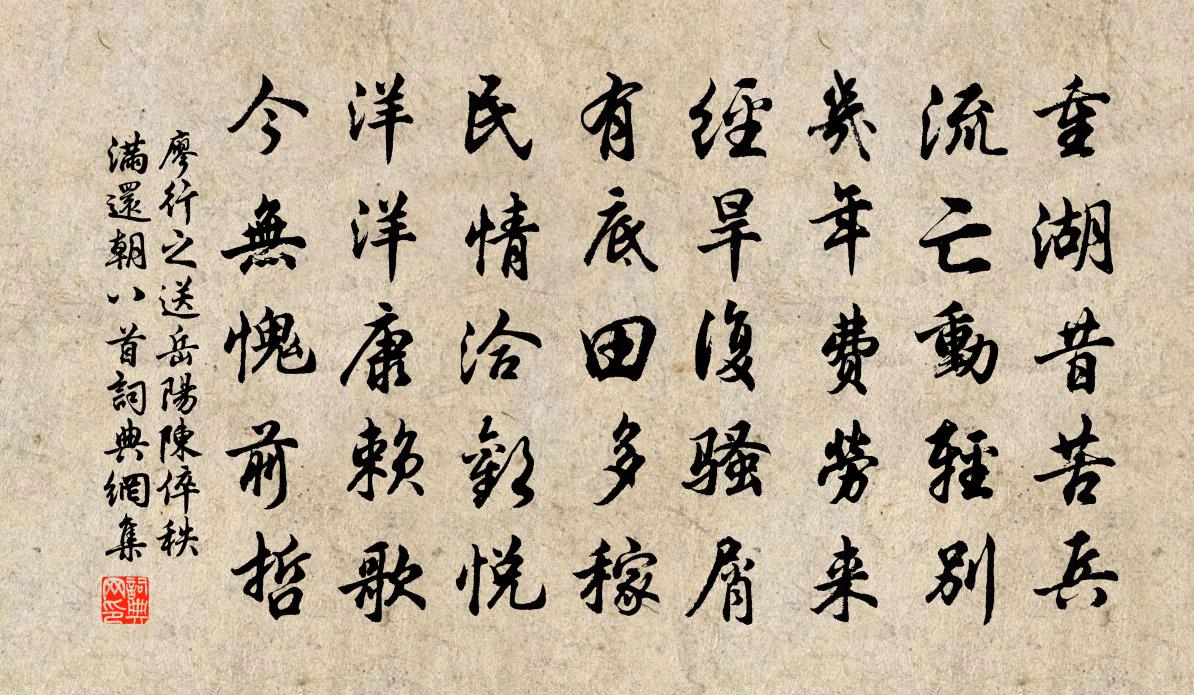 重湖昔苦兵
流亡動輕別
幾年費勞来
經旱復騷屑
有底田多稼
民情洽歡悅
洋洋康賴歌
今無愧前哲
廖行之送岳陽陳倅秩
滿還朝八首詞典網集
詞典網印